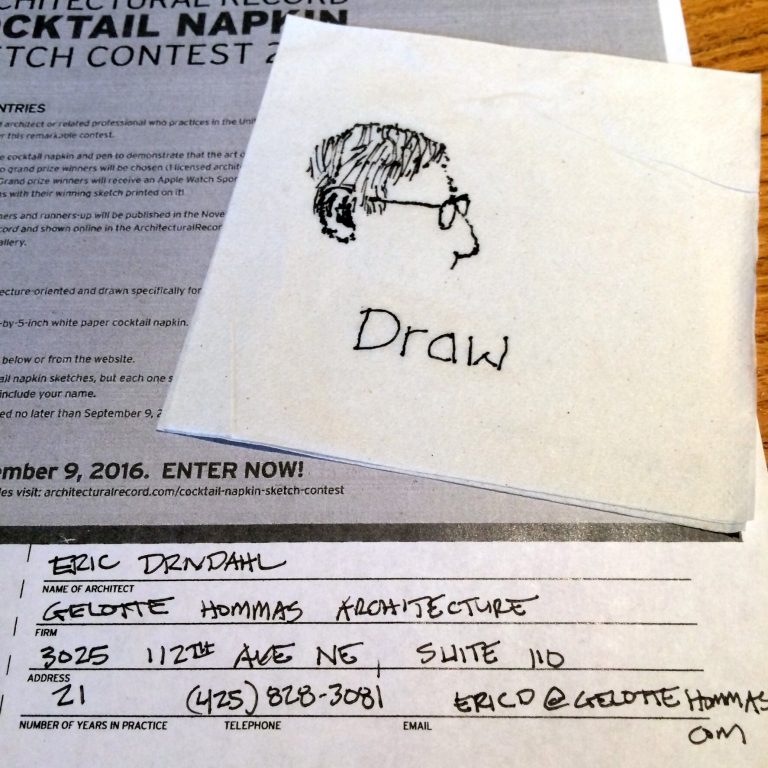 ARCHITECTURAL RECORD
COCKTAIL NAPKIN
SKETCH CONTEST 2
ENTRIES
architect or related professional who practices in the Uni
r this remarkable contest.
e cocktail napkin and pen to demonstrate that the art o
o grand prize winners will be chosen (1 licensed archit
Grand prize winners will receive an Apple Watch Spor
s with their winning sketch printed on it)
ners and runners-up will be published in the Nove
cord and shown online in the ArchitecturalRecor
allery.
ecture-oriented and drawn specifically for
-by-5-inch white paper cocktail napkin.
below or from the website.
ail napkin sketches, but each one s
include your name.
ed no later than September 9, 2
ember 9, 2016. ENTER NOW!
les visit: architecturalrecord.com/cocktail-napkin-sketch-contest
Draw
ERIC DRNDAHL
NAME OF ARCHITECT
GELOTTE HOMMAS ARCHITECTURE
FIRM
3025 112TH AVE NE, SUITE 110
ADDRESS
21 (425) 828-3081 ERICD@GELOTTEHOMMAS
NUMBER OF YEARS IN PRACTICE TELEPHONE EMAIL
COM